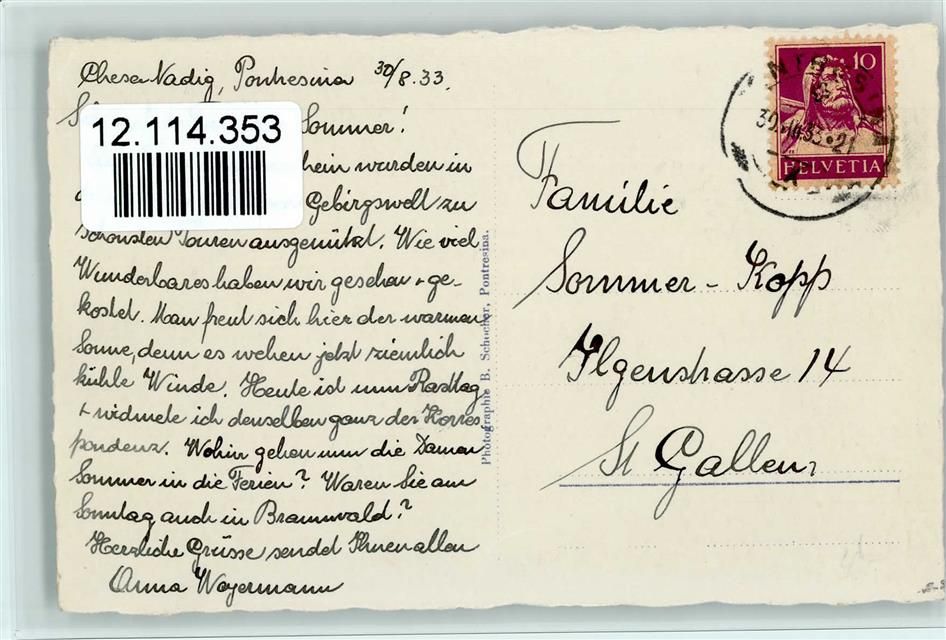 Chesa Nadig, Pontresina 30/8.33.
Sommer!
12.114.353
wurden in
Gebirgswelt zu
schönsten Touren ausgenützt. Wie viel
Wunderbares haben wir gesehen + ge-
kostet. Man freut sich hier der warmen
Sonne, denn es wehen jetzt ziemlich
kühle Winde. Heute ist nun Rasttag
+ widmete ich denselben ganz der Korres
pondenz. Wohin gehen nun die Damen
Sommer in die Ferien? Waren Sie am
Sonntag auch in Braunwald?
Herzliche Grüsse sendet Ihnen allen
Anna Weyermann
Photographie B. Schocher, Pontresina.
10
HELVETIA
Familie
Sommer-Kopp
Ilgenstrasse 14
St Gallen